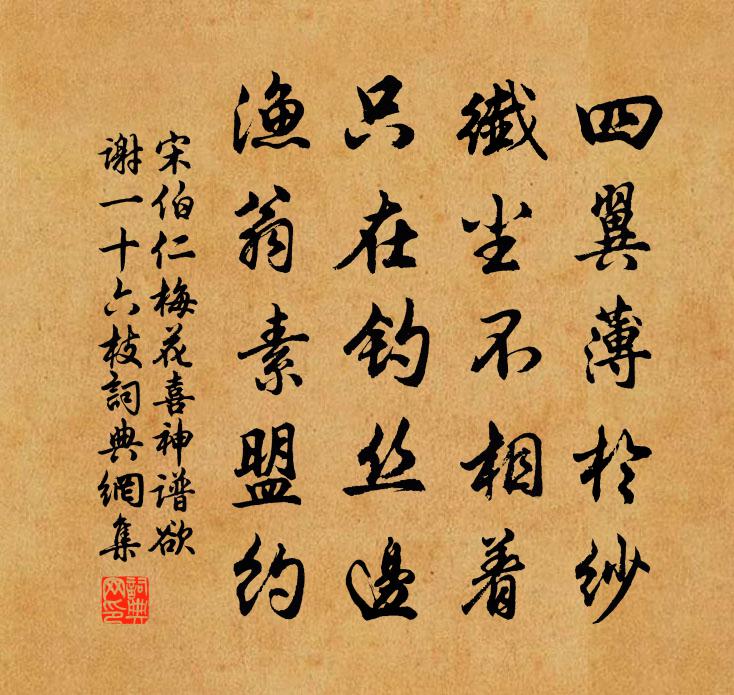 四翼薄於紗
纖尘不相着
只在钓丝邊
渔翁素盟约
宋伯仁梅花喜神谱欲
谢一十六枝詞典網集
詞典网印